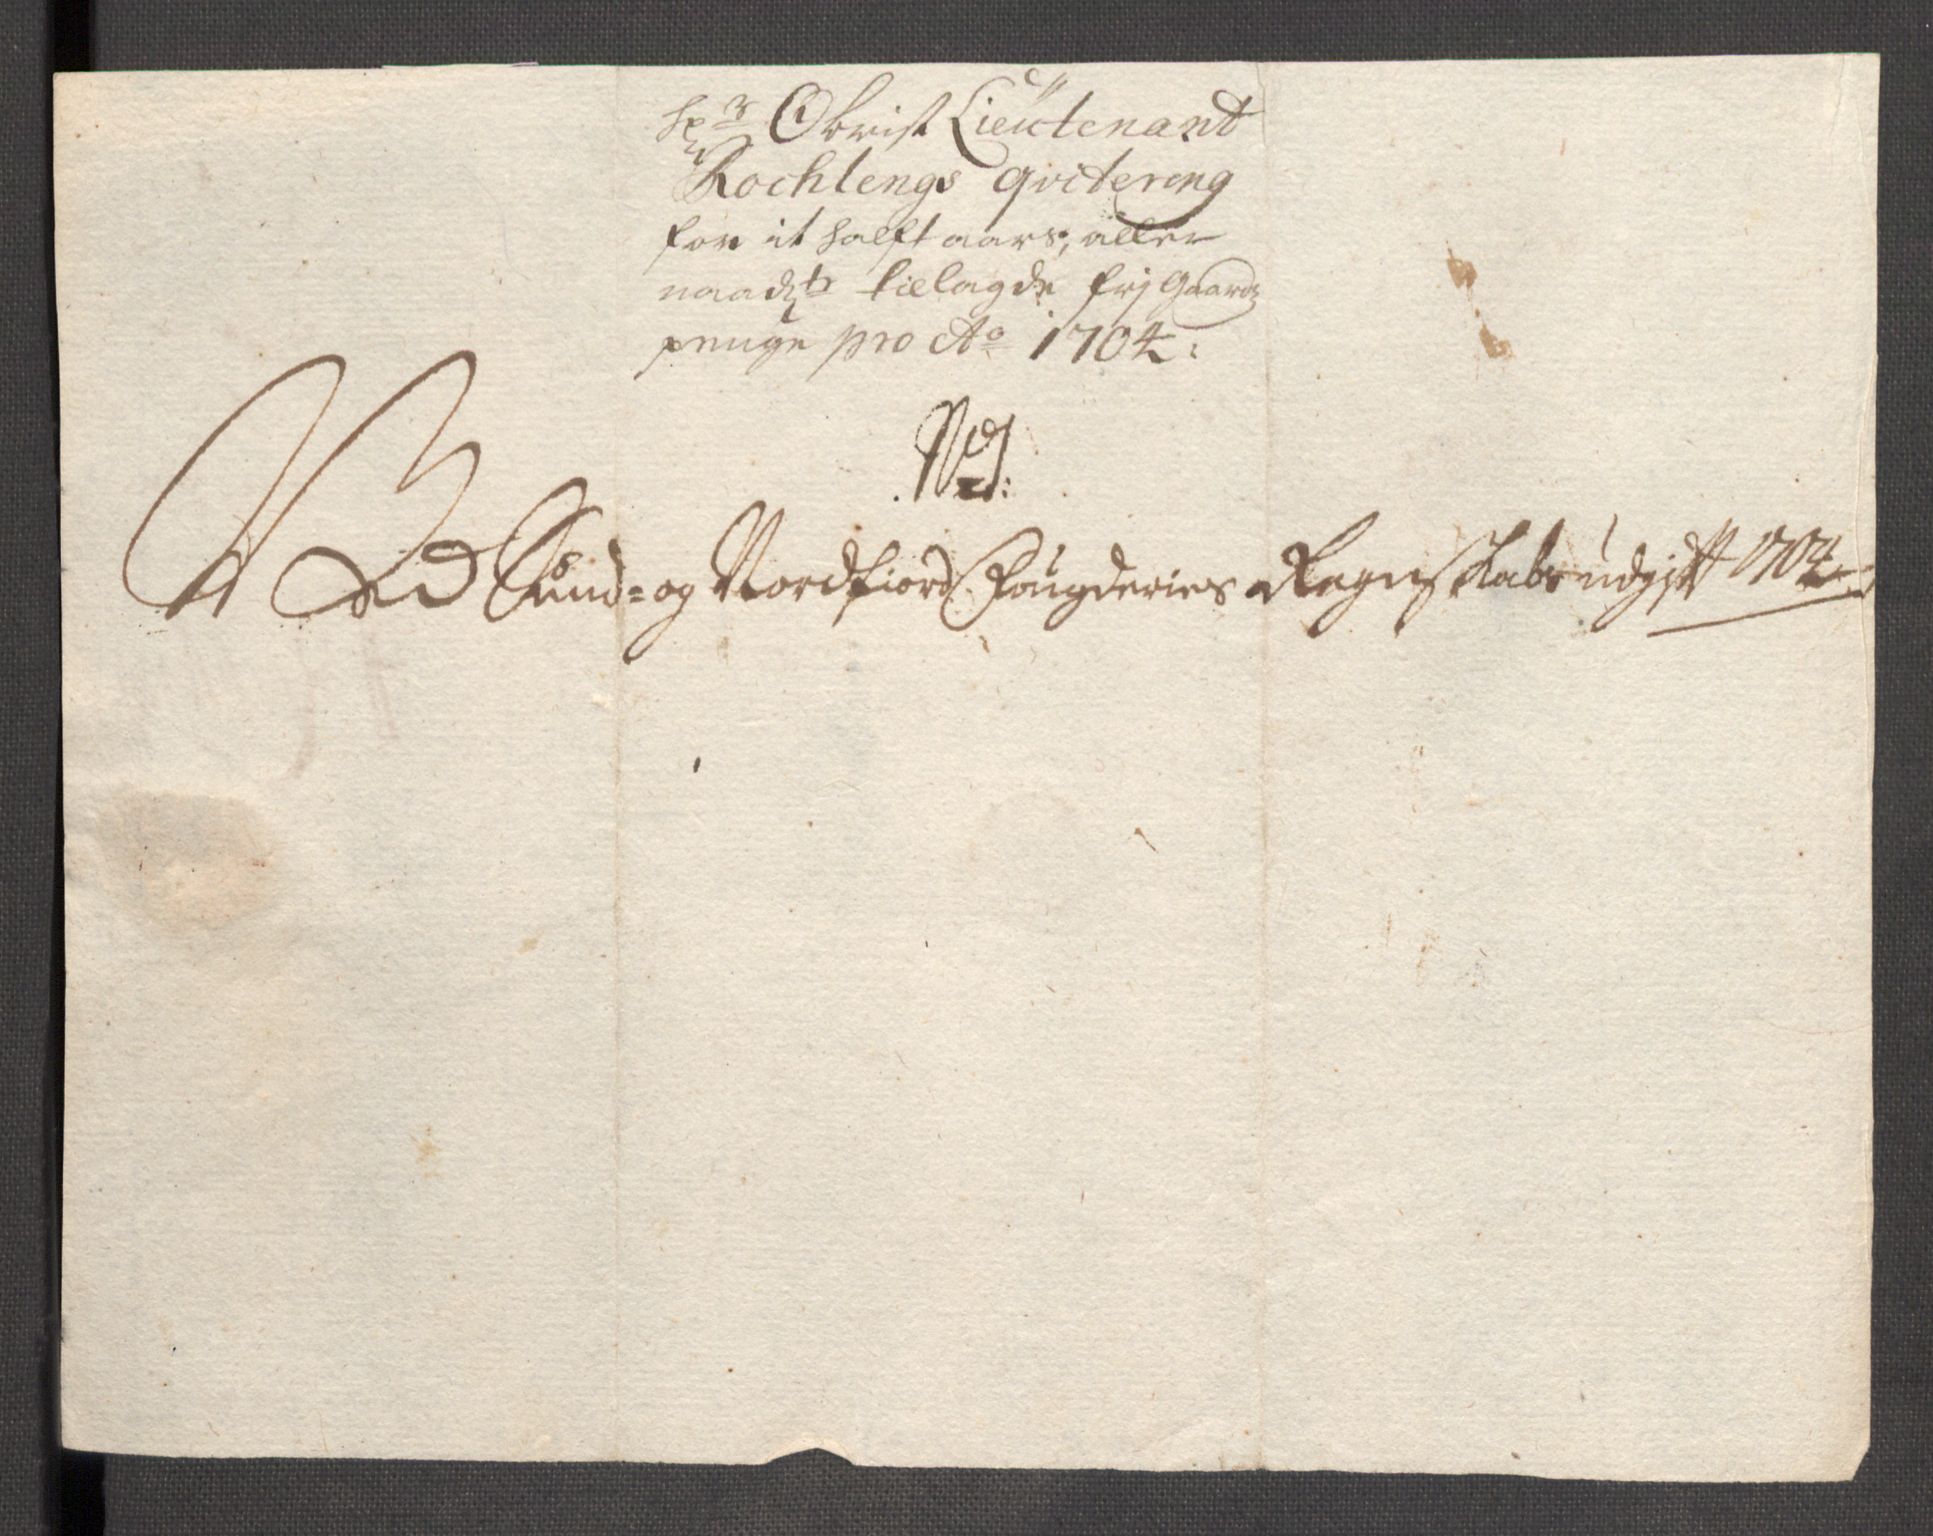 Hr Obrist Lieütenant
Rochlengs qvitering
for it halft aars, aller
naadte tillagde frj Gaards
penge pro Ao 1704:
No
Sund= og Nordfiord Fougderies Regnskabs udgift 1704